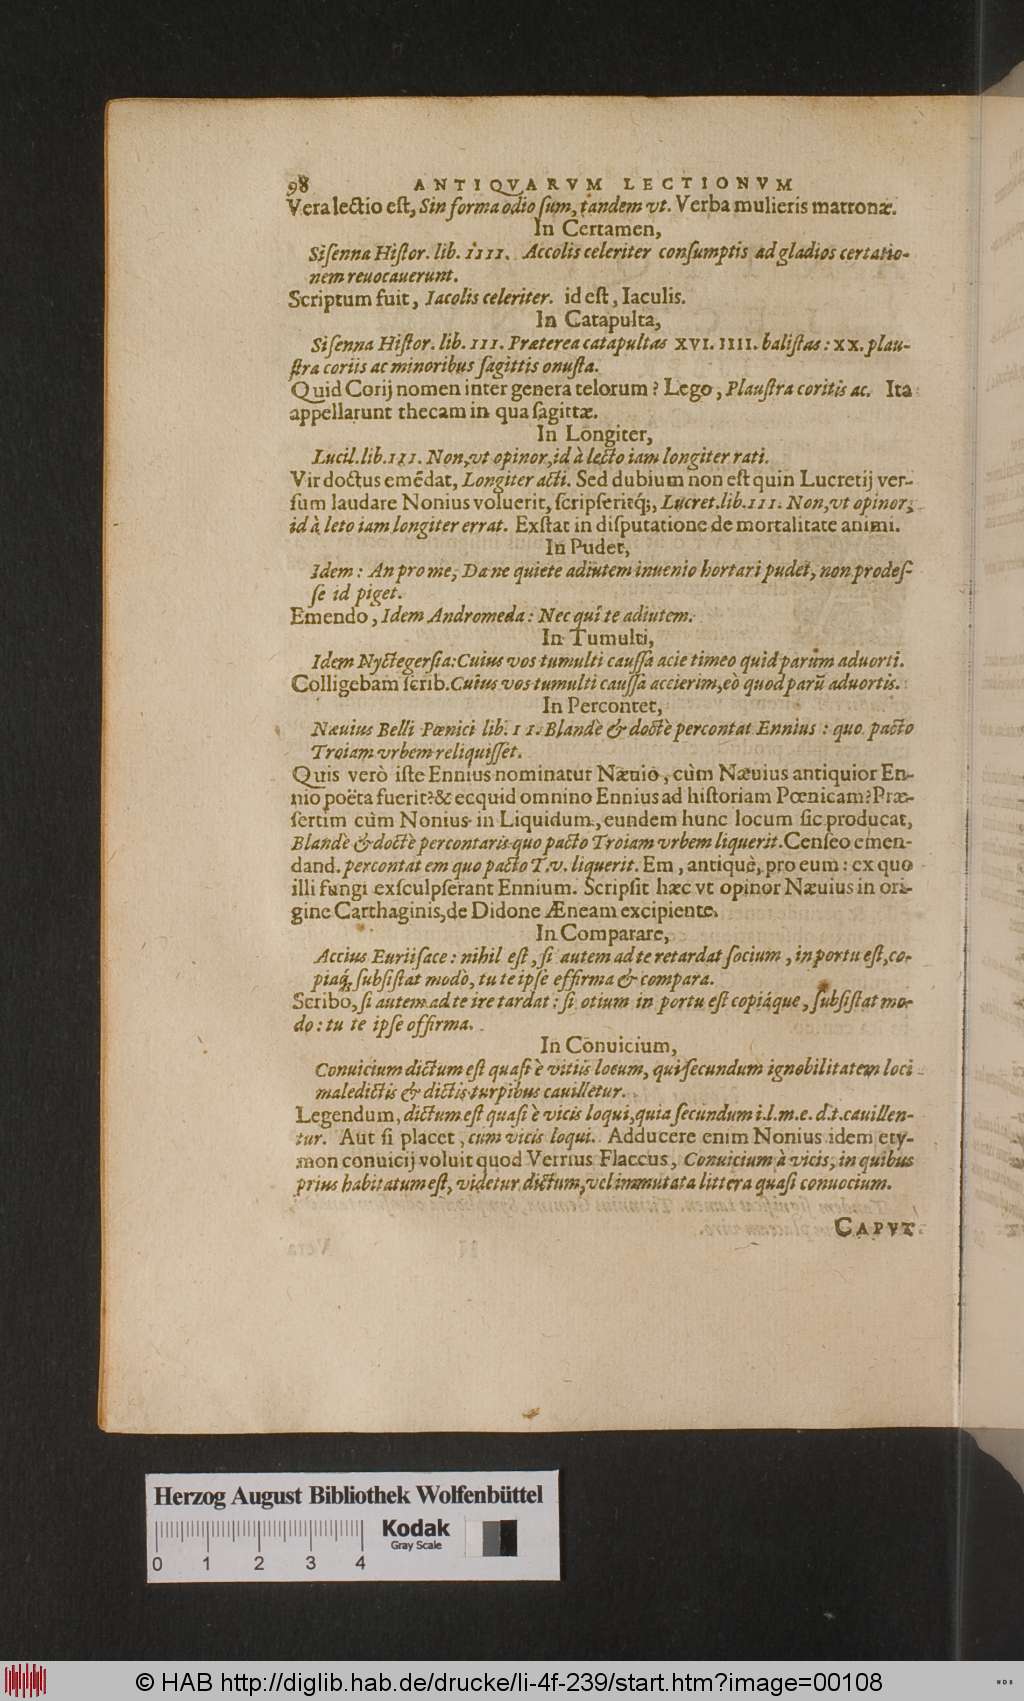 98 ANTIQVARVM LECTIONVM
Vera lectio eſt, Sin forma odio ſum, tandem vt. Verba mulieris matronæ.
In Certamen,
Siſenna Hiſtor. lib. IIII. Accolis celeriter conſumptis ad gladios certatio-
nem reuocauerunt.
Scriptum fuit, Iacolis celeriter. id eſt, Iaculis.
In Catapulta,
Siſenna Hiſtor. lib. III. Præterea catapultas XVI. IIII. baliſtas: XX. plau-
ſtra coriis ac minoribus ſagittis onuſta.
Quid Corij nomen inter genera telorum? Lego, Plauſtra coritis ac. Ita
appellarunt thecam in qua ſagittæ.
In Longiter,
Lucil. lib. III. Non, vt opinor, id à lecto iam longiter rati.
Vir doctus emēdat, Longiter acti. Sed dubium non eſt quin Lucretij ver-
ſum laudare Nonius voluerit, ſcripſeritq́;, Lucret. lib. III. Non, vt opinor,
id à leto iam longiter errat. Exſtat in diſputatione de mortalitate animi.
In Pudet,
Idem: An pro me, Da ne quiete adiutem inuenio hortari pudet, non prodeſ-
ſe id piget.
Emendo, Idem Andromeda: Nec qui te adiutem.
In Tumulti,
Idem Nyctegerſia: Cuius vos tumulti cauſſa acie timeo quid parum aduorti.
Colligebam ſcrib. Cuius vos tumulti cauſſa accierim, eò quod parū aduortis.
In Percontet,
Næuius Belli Pœnici lib. II. Blandè & doctè percontat Ennius: quo pacto
Troiam vrbem reliquiſſet.
Quis verò iſte Ennius nominatur Næuio, cùm Næuius antiquior En-
nio poëta fuerit? & ecquid omnino Ennius ad hiſtoriam Pœnicam? Præ-
ſertim cùm Nonius in Liquidum, eundem hunc locum ſic producat,
Blandè & doctè percontaris quo pacto Troiam vrbem liquerit. Cenſeo emen-
dand. percontat em quo pacto T. v. liquerit. Em, antiquè, pro eum: ex quo
illi fungi exſculpſerant Ennium. Scripſit hæc vt opinor Næuius in ori-
gine Carthaginis, de Didone Æneam excipiente.
In Comparare,
Accius Euriiſace: nihil eſt, ſi autem ad te retardat ſocium, in portu eſt, co-
piaq́, ſubſiſtat modo, tu te ipſe effirma & compara.
Scribo, ſi autem ad te ire tardat: ſi otium in portu eſt copiáque, ſubſiſtat mo-
do: tu te ipſe offirma.
In Conuicium,
Conuicium dictum eſt quaſi è vitiis locum, qui ſecundum ignobilitatem loci
maledictis & dictis turpibus cauilletur.
Legendum, dictum eſt quaſi è vicis loqui, quia ſecundum i. l. m. e. d. t. cauillen-
tur. Aut ſi placet, cum vicis loqui. Adducere enim Nonius idem ety-
mon conuicij voluit quod Verrius Flaccus, Conuicium à vicis, in quibus
prius habitatum eſt, videtur dictum, vel immutata littera quaſi conuocium.
CAPVT
Herzog August Bibliothek Wolfenbüttel
0 1 2 3 4
Kodak
Gray Scale
© HAB http://diglib.hab.de/drucke/li-4f-239/start.htm?image=00108